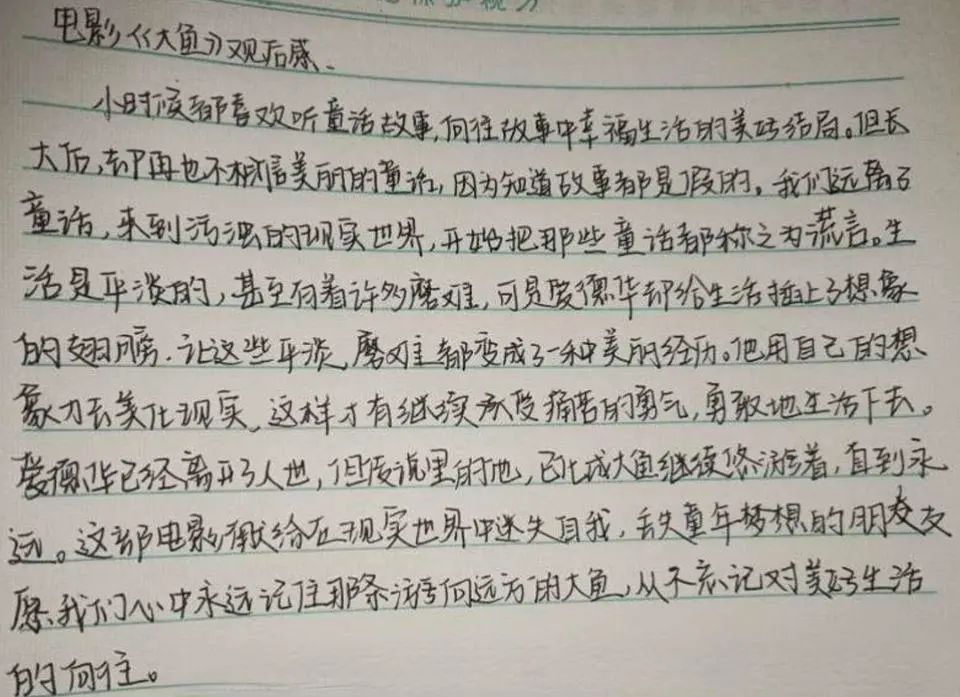 保护视力
电影《大鱼》观后感.
小时候都喜欢听童话故事,向往故事中幸福生活的美好结局。但长
大后,却再也不相信美丽的童话,因为知道故事都是假的。我们远离了
童话,来到污浊的现实世界,开始把那些童话都称之为谎言。生
活是平淡的,甚至有着许多磨难,可是爱德华却给生活插上了想象
的翅膀.让这些平淡、磨难都变成了一种美丽经历。他用自己的想
象力去美化现实,这样才有继续承受痛苦的勇气,勇敢地生活下去。
爱德华已经离开了人世,但传说里的他,已化成大鱼继续悠游着,直到永
远。这部电影献给在现实世界中迷失自我,丢失童年梦想的朋友
愿我们心中永远记住那条游向远方的大鱼,从不忘记对美好生活
的向往。